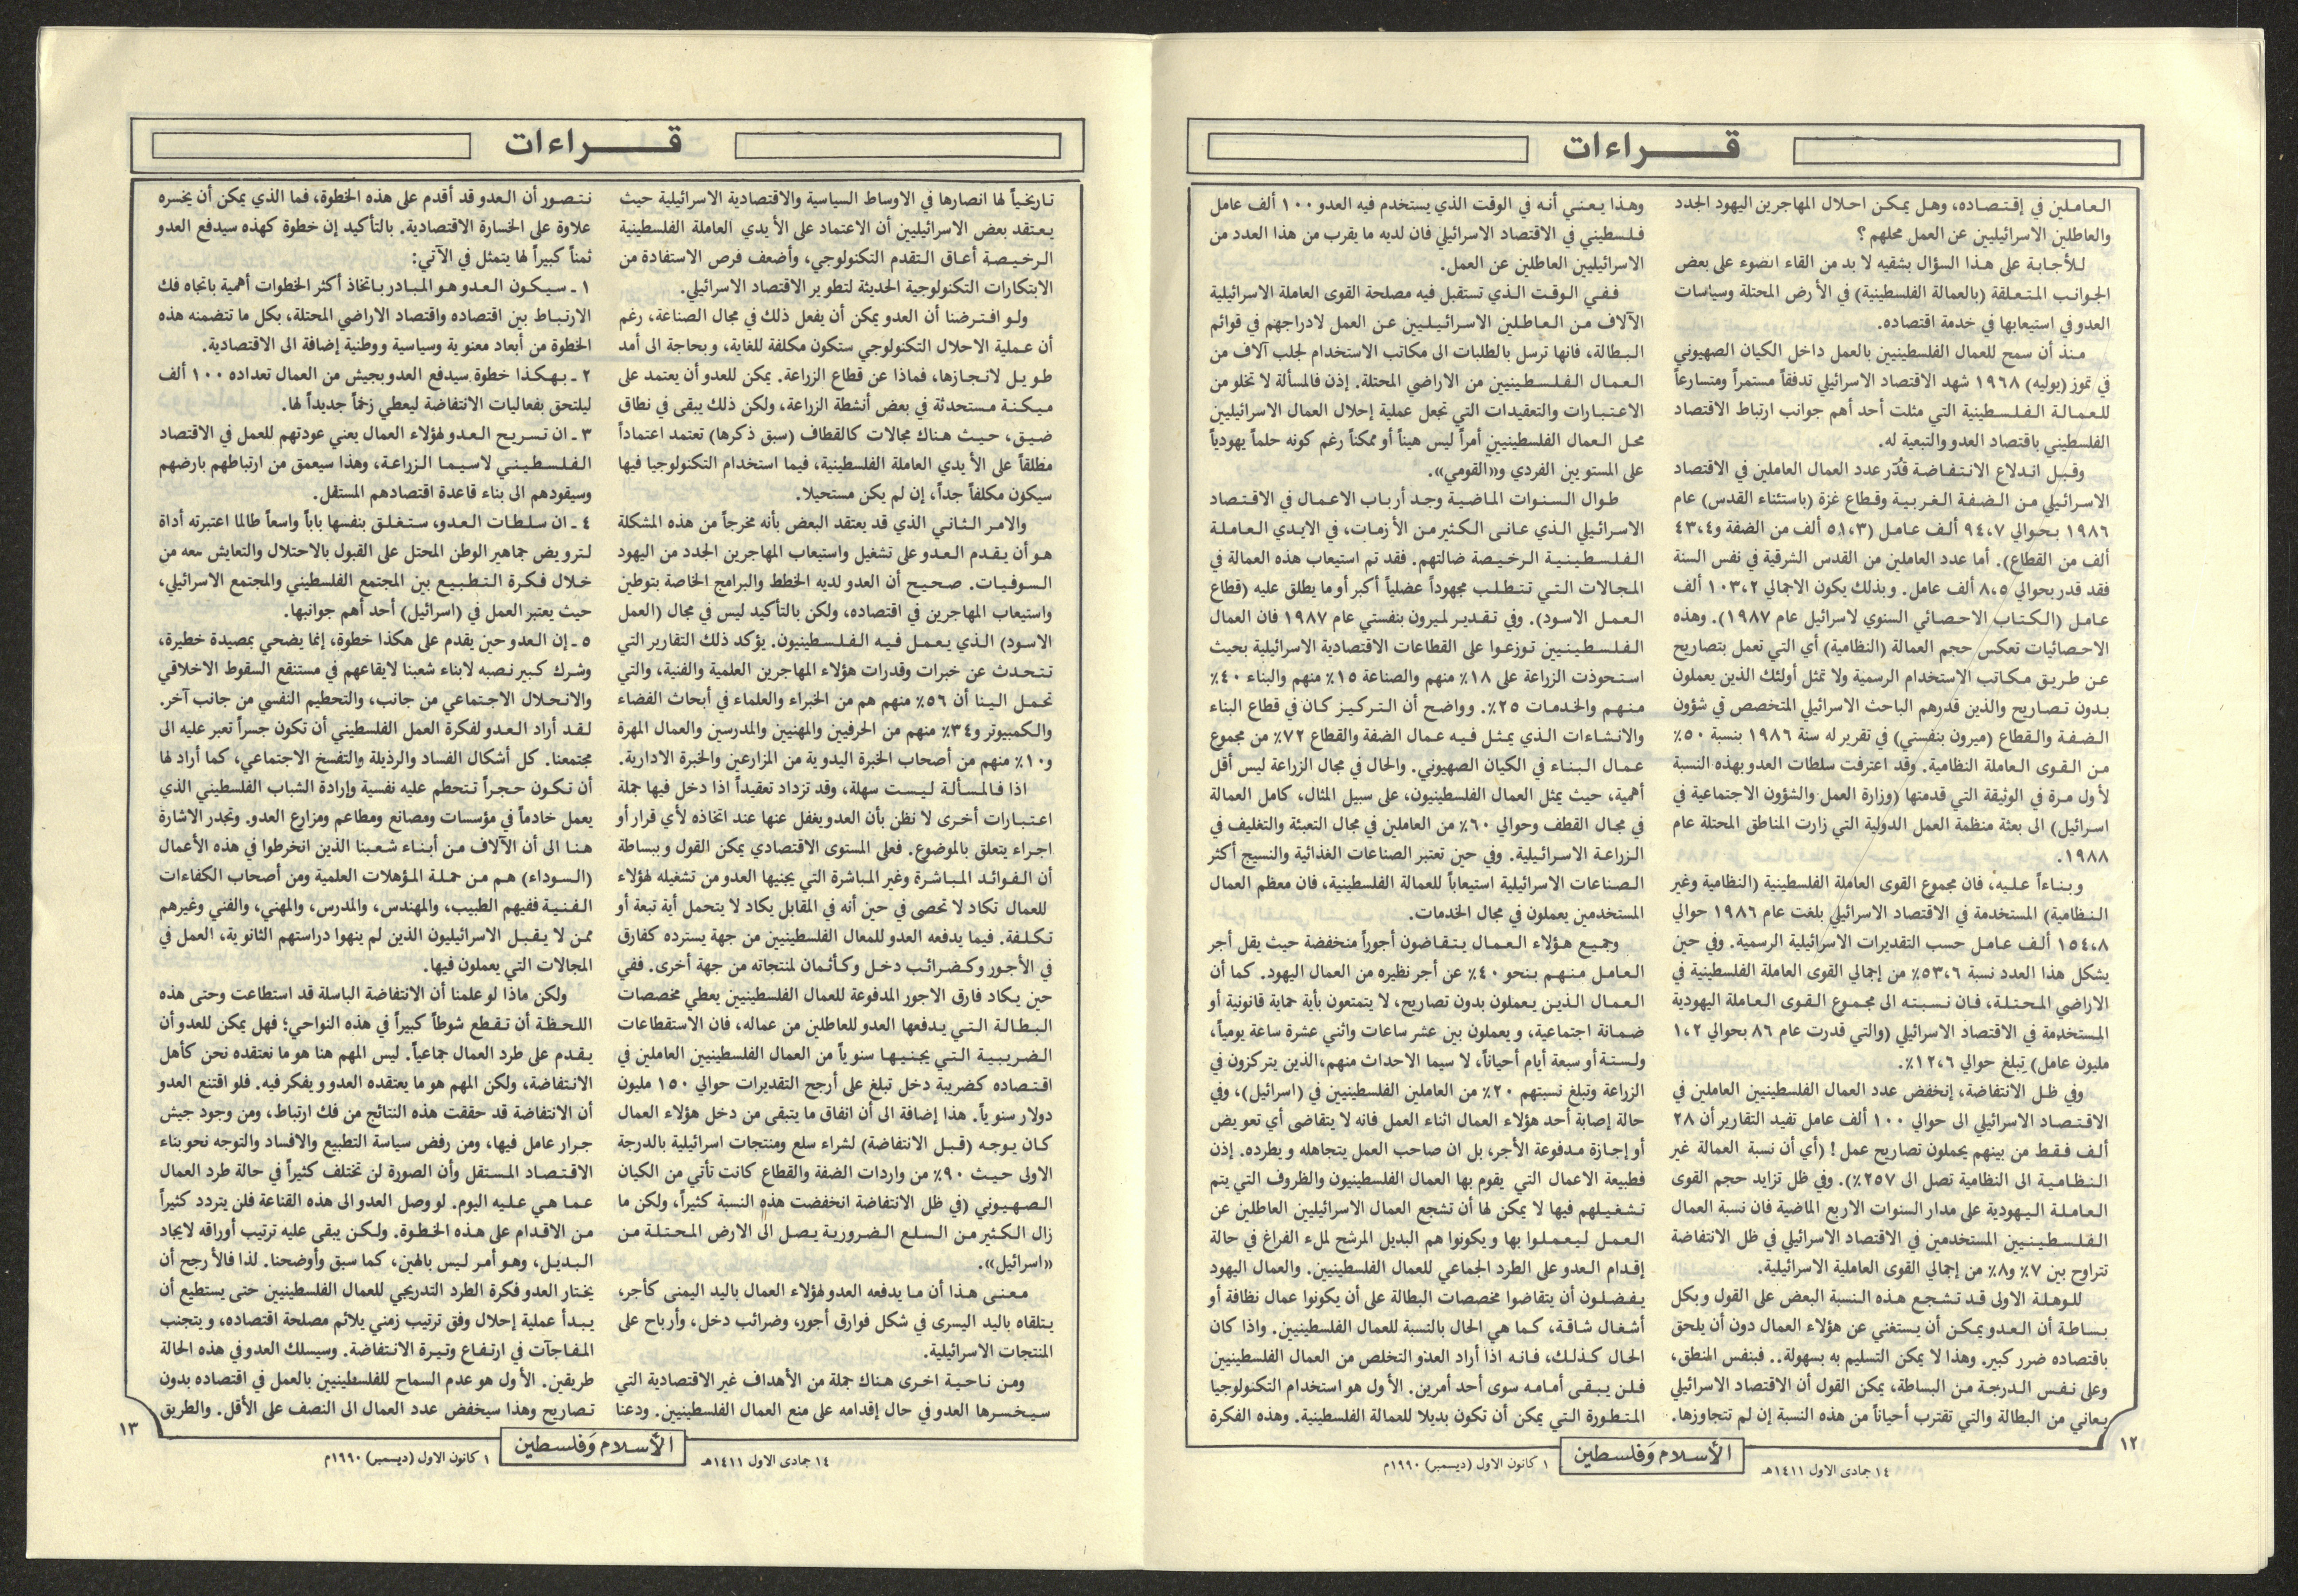 قـــراءات
العاملين في إقتصاده، وهل يمكن احلال المهاجرين اليهود الجدد
والعاطلين الاسرائيليين عن العمل محلهم ؟
للأجابة على هذا السؤال بشقيه لا بد من القاء الضوء على بعض
الجوانب المتعلقة (بالعمالة الفلسطينية) في الأرض المحتلة وسياسات
العدو في استيعابها في خدمة اقتصاده.
منذ أن سمح للعمال الفلسطينيين بالعمل داخل الكيان الصهيوني
في تموز (يوليه) ١٩٦٨ شهد الاقتصاد الاسرائيلي تدفقاً مستمراً ومتسارعاً
للعمالة الفلسطينية التي مثلت أحد أهم جوانب ارتباط الاقتصاد
الفلسطيني باقتصاد العدو والتبعية له.
وقبل اندلاع الانتفاضة قُدّر عدد العمال العاملين في الاقتصاد
الاسرائيلي من الضفة الغربية وقطاع غزة (باستثناء القدس) عام
١٩٨٦ بحوالي ٩٤،٧ ألف عامل (٥١،٣ ألف من الضفة و٤٣،٤
ألف من القطاع). أما عدد العاملين من القدس الشرقية في نفس السنة
فقد قدر بحوالي ٨،٥ ألف عامل. وبذلك يكون الاجمالي ١٠٣،٢ ألف
عامل (الكتاب الاحصائي السنوي لاسرائيل عام ١٩٨٧). وهذه
الاحصائيات تعكس حجم العمالة (النظامية) أي التي تعمل بتصاريح
عن طريق مكاتب الاستخدام الرسمية ولا تمثل أولئك الذين يعملون
بدون تصاريح والذين قدرهم الباحث الاسرائيلي المتخصص في شؤون
الضفة والقطاع (ميرون بنفستي) في تقرير له سنة ١٩٨٦ بنسبة ٥٠٪
من القوى العاملة النظامية. وقد اعترفت سلطات العدو بهذه النسبة
لأول مرة في الوثيقة التي قدمتها (وزارة العمل والشؤون الاجتماعية في
اسرائيل) الى بعثة منظمة العمل الدولية التي زارت المناطق المحتلة عام
١٩٨٨.
وبناءاً عليه، فان مجموع القوى العاملة الفلسطينية (النظامية وغير
النظامية) المستخدمة في الاقتصاد الاسرائيلي بلغت عام ١٩٨٦ حوالي
١٥٤،٨ ألف عامل حسب التقديرات الاسرائيلية الرسمية. وفي حين
يشكل هذا العدد نسبة ٥٣،٦٪ من إجمالي القوى العاملة الفلسطينية في
الاراضي المحتلة، فان نسبته الى مجموع القوى العاملة اليهودية
المستخدمة في الاقتصاد الاسرائيلي (والتي قدرت عام ٨٦ بحوالي ١،٢
مليون عامل) تبلغ حوالي ١٢،٦٪.
وفي ظل الانتفاضة، إنخفض عدد العمال الفلسطينيين العاملين في
الاقتصاد الاسرائيلي الى حوالي ١٠٠ ألف عامل تفيد التقارير أن ٢٨
ألف فقط من بينهم يحملون تصاريح عمل ! (أي أن نسبة العمالة غير
النظامية الى النظامية تصل الى ٢٥٧٪). وفي ظل تزايد حجم القوى
العاملة اليهودية على مدار السنوات الاربع الماضية فان نسبة العمال
الفلسطينيين المستخدمين في الاقتصاد الاسرائيلي في ظل الانتفاضة
تتراوح بين ٧٪ و٨٪ من إجمالي القوى العاملية الاسرائيلية.
للوهلة الاولى قد تشجع هذه النسبة البعض على القول وبكل
بساطة أن العدو يمكن أن يستغني عن هؤلاء العمال دون أن يلحق
باقتصاده ضرر كبير. وهذا لا يمكن التسليم به بسهولة.. فبنفس المنطق،
وعلى نفس الدرجة من البساطة، يمكن القول أن الاقتصاد الاسرائيلي
يعاني من البطالة والتي تقترب أحياناً من هذه النسبة إن لم تتجاوزها.
وهذا يعني أنه في الوقت الذي يستخدم فيه العدو ١٠٠ ألف عامل
فلسطيني في الاقتصاد الاسرائيلي فان لديه ما يقرب من هذا العدد من
الاسرائيليين العاطلين عن العمل.
ففي الوقت الذي تستقبل فيه مصلحة القوى العاملة الاسرائيلية
الآلاف من العاطلين الاسرائيليين عن العمل لادراجهم في قوائم
البطالة، فانها ترسل بالطلبات الى مكاتب الاستخدام لجلب آلاف من
العمال الفلسطينيين من الاراضي المحتلة. إذن فالمسألة لا تخلو من
الاعتبارات والتعقيدات التي تجعل عملية إحلال العمال الاسرائيليين
محل العمال الفلسطينيين أمراً ليس هيناً أو ممكناً رغم كونه حلماً يهودياً
على المستويين الفردي و«القومي».
طوال السنوات الماضية وجد أرباب الاعمال في الاقتصاد
الاسرائيلي الذي عانى الكثير من الأزمات، في الايدي العاملة
الفلسطينية الرخيصة ضالتهم. فقد تم استيعاب هذه العمالة في
المجالات التي تتطلب مجهوداً عضلياً أكبر أو ما يطلق عليه (قطاع
العمل الاسود). وفي تقدير لميرون بنفستي عام ١٩٨٧ فان العمال
الفلسطينيين توزعوا على القطاعات الاقتصادية الاسرائيلية بحيث
استحوذت الزراعة على ١٨٪ منهم والصناعة ١٥٪ منهم والبناء ٤٠٪
منهم والخدمات ٢٥٪. وواضح أن التركيز كان في قطاع البناء
والانشاءات الذي يمثل فيه عمال الضفة والقطاع ٧٢٪ من مجموع
عمال البناء في الكيان الصهيوني. والحال في مجال الزراعة ليس أقل
أهمية، حيث يمثل العمال الفلسطينيون، على سبيل المثال، كامل العمالة
في مجال القطف وحوالي ٦٠٪ من العاملين في مجال التعبئة والتغليف في
الزراعة الاسرائيلية. وفي حين تعتبر الصناعات الغذائية والنسيج أكثر
الصناعات الاسرائيلية استيعاباً للعمالة الفلسطينية، فان معظم العمال
المستخدمين يعملون في مجال الخدمات.
وجميع هؤلاء العمال يتقاضون أجوراً منخفضة حيث يقل أجر
العامل منهم بنحو ٤٠٪ عن أجر نظيره من العمال اليهود. كما أن
العمال الذين يعملون بدون تصاريح، لا يتمتعون بأية حماية قانونية أو
ضمانة اجتماعية، ويعملون بين عشر ساعات واثني عشرة ساعة يومياً،
ولستة أو سبعة أيام أحياناً، لا سيما الاحداث منهم،الذين يتركزون في
الزراعة وتبلغ نسبتهم ٢٠٪ من العاملين الفلسطينيين في (اسرائيل)، وفي
حالة إصابة أحد هؤلاء العمال اثناء العمل فانه لا يتقاضى أي تعويض
أو إجازة مدفوعة الأجر، بل ان صاحب العمل يتجاهله ويطرده. إذن
فطبيعة الاعمال التي يقوم بها العمال الفلسطينيون والظروف التي يتم
تشغيلهم فيها لا يمكن لها أن تشجع العمال الاسرائيليين العاطلين عن
العمل ليعملوا بها ويكونوا هم البديل المرشح لملء الفراغ في حالة
إقدام العدو على الطرد الجماعي للعمال الفلسطينيين. والعمال اليهود
يفضلون أن يتقاضوا مخصصات البطالة على أن يكونوا عمال نظافة أو
أشغال شاقة، كما هي الحال بالنسبة للعمال الفلسطينيين. واذا كان
الحال كذلك، فانه اذا أراد العدو التخلص من العمال الفلسطينيين
فلن يبقى أمامه سوى أحد أمرين. الأول هو استخدام التكنولوجيا
المتطورة التي يمكن أن تكون بديلا للعمالة الفلسطينية. وهذه الفكرة
١٢
١٤ جمادى الاول ١٤١١هـ
الأسلام وَفلسطين
١ كانون الاول (ديسمبر) ١٩٩٠م
قـــراءات
تاريخياً لها انصارها في الاوساط السياسية والاقتصادية الاسرائيلية حيث
يعتقد بعض الاسرائيليين أن الاعتماد على الأيدي العاملة الفلسطينية
الرخيصة أعاق التقدم التكنولوجي، وأضعف فرص الاستفادة من
الابتكارات التكنولوجية الحديثة لتطوير الاقتصاد الاسرائيلي.
ولو افترضنا أن العدو يمكن أن يفعل ذلك في مجال الصناعة، رغم
أن عملية الاحلال التكنولوجي ستكون مكلفة للغاية، وبحاجة الى أمد
طويل لانجازها، فماذا عن قطاع الزراعة. يمكن للعدو أن يعتمد على
ميكنة مستحدثة في بعض أنشطة الزراعة، ولكن ذلك يبقى في نطاق
ضيق، حيث هناك مجالات كالقطاف (سبق ذكرها) تعتمد اعتماداً
مطلقاً على الأيدي العاملة الفلسطينية، فيما استخدام التكنولوجيا فيها
سيكون مكلفاً جداً، إن لم يكن مستحيلا.
والامر الثاني الذي قد يعتقد البعض بأنه مخرجاً من هذه المشكلة
هو أن يقدم العدو على تشغيل واستيعاب المهاجرين الجدد من اليهود
السوفيات. صحيح أن العدو لديه الخطط والبرامج الخاصة بتوطين
واستيعاب المهاجرين في اقتصاده، ولكن بالتأكيد ليس في مجال (العمل
الاسود) الذي يعمل فيه الفلسطينيون. يؤكد ذلك التقارير التي
تتحدث عن خبرات وقدرات هؤلاء المهاجرين العلمية والفنية، والتي
تحمل الينا أن ٥٦٪ منهم هم من الخبراء والعلماء في أبحاث الفضاء
والكمبيوتر و٣٤٪ منهم من الحرفيين والمهنيين والمدرسين والعمال المهرة
و١٠٪ منهم من أصحاب الخبرة اليدوية من المزارعين والخبرة الادارية.
اذا فالمسألة ليست سهلة، وقد تزداد تعقيداً اذا دخل فيها جملة
اعتبارات أخرى لا نظن بأن العدو يغفل عنها عند اتخاذه لأي قرار أو
اجراء يتعلق بالموضوع. فعلى المستوى الاقتصادي يمكن القول وببساطة
أن الفوائد المباشرة وغير المباشرة التي يجنيها العدو من تشغيله لهؤلاء
للعمال تكاد لا تحصى في حين أنه في المقابل يكاد لا يتحمل أية تبعة أو
تكلفة. فيما يدفعه العدو للمعال الفلسطينيين من جهة يسترده كفارق
في الأجور وكضرائب دخل وكأثمان لمنتجاته من جهة أخرى. ففي
حين يكاد فارق الاجور المدفوعة للعمال الفلسطينيين يعطي مخصصات
البطالة التي يدفعها العدو للعاطلين من عماله، فان الاستقطاعات
الضريبية التي يجنيها سنوياً من العمال الفلسطينيين العاملين في
اقتصاده كضريبة دخل تبلغ على أرجح التقديرات حوالي ١٥٠ مليون
دولار سنوياً. هذا إضافة الى أن انفاق ما يتبقى من دخل هؤلاء العمال
كان يوجه (قبل الانتفاضة) لشراء سلع ومنتجات اسرائيلية بالدرجة
الاولى حيث ٩٠٪ من واردات الضفة والقطاع كانت تأتي من الكيان
الصهيوني (في ظل الانتفاضة انخفضت هذه النسبة كثيراً، ولكن ما
زال الكثير من السلع الضرورية يصل الى الارض المحتلة من
«اسرائيل».
معنى هذا أن ما يدفعه العدو لهؤلاء العمال باليد اليمنى كأجر،
يتلقاه باليد اليسرى في شكل فوارق أجور، وضرائب دخل، وأرباح على
المنتجات الاسرائيلية.
ومن ناحية اخرى هناك جملة من الأهداف غير الاقتصادية التي
سيخسرها العدو في حال إقدامه على منع العمال الفلسطينيين. ودعنا
نتصور أن العدو قد أقدم على هذه الخطوة، فما الذي يمكن أن يخسره
علاوة على الخسارة الاقتصادية. بالتأكيد إن خطوة كهذه سيدفع العدو
ثمناً كبيراً لها يتمثل في الآتي:
١ ـ سيكون العدو هو المبادر باتخاذ أكثر الخطوات أهمية باتجاه فك
الارتباط بين اقتصاده واقتصاد الاراضي المحتلة، بكل ما تتضمنه هذه
الخطوة من أبعاد معنوية وسياسية ووطنية إضافة الى الاقتصادية.
٢ ـ بهكذا خطوة سيدفع العدو بجيش من العمال تعداده ١٠٠ ألف
ليلتحق بفعاليات الانتفاضة ليعطي زخماً جديداً لها.
٣ ـ ان تسريح العدو لهؤلاء العمال يعني عودتهم للعمل في الاقتصاد
الفلسطيني لاسيما الزراعة، وهذا سيعمق من ارتباطهم بارضهم
وسيقودهم الى بناء قاعدة اقتصادهم المستقل.
٤ ـ ان سلطات العدو، ستغلق بنفسها باباً واسعاً طالما اعتبرته أداة
لترويض جماهير الوطن المحتل على القبول بالاحتلال والتعايش معه من
خلال فكرة التطبيع بين المجتمع الفلسطيني والمجتمع الاسرائيلي،
حيث يعتبر العمل في (اسرائيل) أحد أهم جوانبها.
٥ ـ إن العدو حين يقدم على هكذا خطوة، إنما يضحي بمصيدة خطيرة،
وشرك كبير نصبه لابناء شعبنا لايقاعهم في مستنقع السقوط الاخلاقي
والانحلال الاجتماعي من جانب، والتحطيم النفسي من جانب آخر.
لقد أراد العدو لفكرة العمل الفلسطيني أن تكون جسراً تعبر عليه الى
مجتمعنا. كل أشكال الفساد والرذيلة والتفسخ الاجتماعي، كما أراد لها
أن تكون حجراً تتحطم عليه نفسية وإرادة الشباب الفلسطيني الذي
يعمل خادماً في مؤسسات ومصانع ومطاعم ومزارع العدو. وتجدر الاشارة
هنا الى أن الآلاف من أبناء شعبنا الذين انخرطوا في هذه الأعمال
(السوداء) هم من حملة المؤهلات العلمية ومن أصحاب الكفاءات
الفنية ففيهم الطبيب، والمهندس، والمدرس، والمهني، والفني وغيرهم
ممن لا يقبل الاسرائيليون الذين لم ينهوا دراستهم الثانوية، العمل في
المجالات التي يعملون فيها.
ولكن ماذا لو علمنا أن الانتفاضة الباسلة قد استطاعت وحتى هذه
اللحظة أن تقطع شوطاً كبيراً في هذه النواحي؛ فهل يمكن للعدو أن
يقدم على طرد العمال جماعياً. ليس المهم هنا هو ما نعتقده نحن كأهل
الانتفاضة، ولكن المهم هو ما يعتقده العدو ويفكر فيه. فلو اقتنع العدو
أن الانتفاضة قد حققت هذه النتائج من فك ارتباط، ومن وجود جيش
جرار عامل فيها، ومن رفض سياسة التطبيع والافساد والتوجه نحو بناء
الاقتصاد المستقل وأن الصورة لن تختلف كثيراً في حالة طرد العمال
عما هي عليه اليوم. لو وصل العدو الى هذه القناعة فلن يتردد كثيراً
من الاقدام على هذه الخطوة. ولكن يبقى عليه ترتيب أوراقه لايجاد
البديل، وهو أمر ليس بالهين، كما سبق وأوضحنا. لذا فالأرجح أن
يختار العدو فكرة الطرد التدريجي للعمال الفلسطينيين حتى يستطيع أن
يبدأ عملية إحلال وفق ترتيب زمني يلائم مصلحة اقتصاده، ويتجنب
المفاجآت في ارتفاع وتيرة الانتفاضة. وسيسلك العدو في هذه الحالة
طريقين. الأول هو عدم السماح للفلسطينيين بالعمل في اقتصاده بدون
تصاريح وهذا سيخفض عدد العمال الى النصف على الأقل. والطريق
١٣
١٤ جمادى الاول ١٤١١هـ
الأسلام وَفلسطين
١ كانون الاول (ديسمبر) ١٩٩٠م